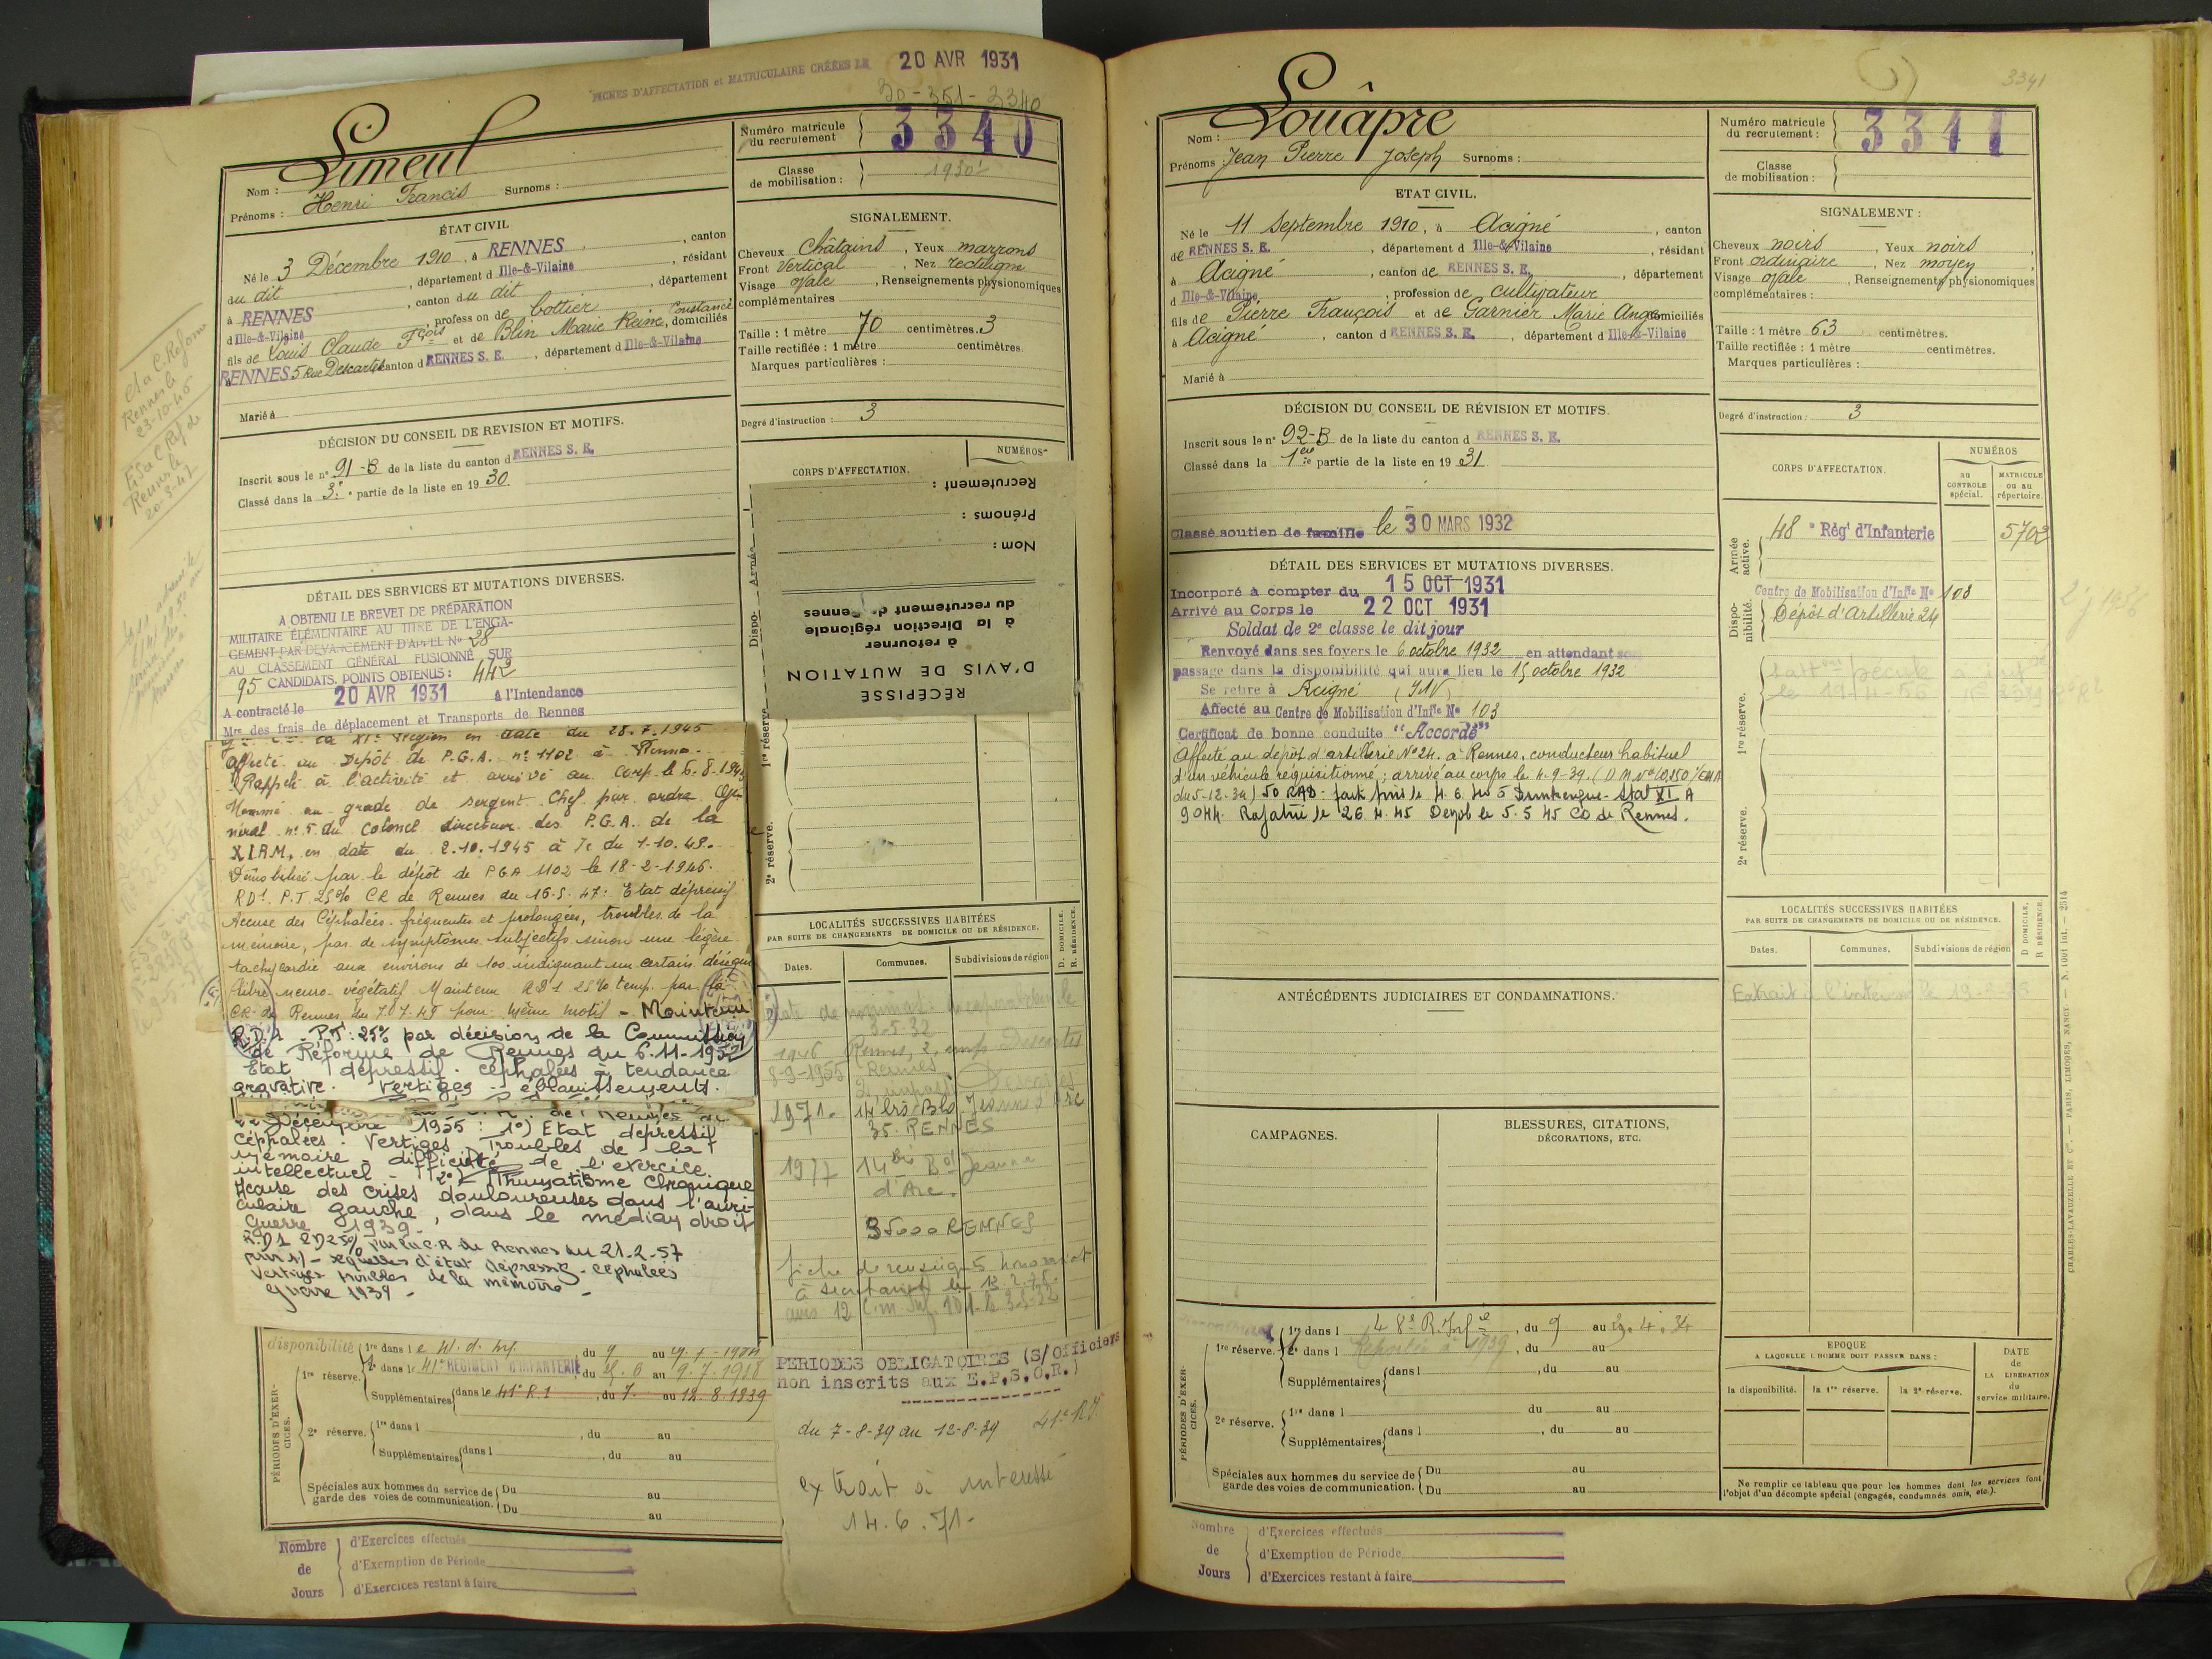 FICHES D'AFFECTATION et MATRICULAIRE CRÉÉES LE 20 AVR 1931
30-351-3340
Nom : Limeul
Prénoms : Henri Francis Surnoms :
Numéro matricule du recrutement 3340
Classe de mobilisation : 1930
ÉTAT CIVIL
Né le 3 Décembre 1910, à RENNES, canton
du dit, département d Ille-&-Vilaine, résidant
à RENNES, canton du dit, département
d Ille-&-Vilaine, profession de bottier
fils de Louis Claude Fçois et de Blin Marie Reine Constance, domiciliés
à RENNES 5 Rue Descartes canton d RENNES S. E., département d Ille-&-Vilaine
Marié à
SIGNALEMENT.
Cheveux Châtains, Yeux marrons
Front Vertical, Nez rectiligne
Visage ovale, Renseignements physionomiques
complémentaires
Taille : 1 mètre 70 centimètres. 3
Taille rectifiée : 1 mètre centimètres.
Marques particulières :
Degré d'instruction : 3
DÉCISION DU CONSEIL DE REVISION ET MOTIFS.
Inscrit sous le n° 91-B de la liste du canton d RENNES S. E.
Classé dans la 3e partie de la liste en 1930.
DÉTAIL DES SERVICES ET MUTATIONS DIVERSES.
A OBTENU LE BREVET DE PRÉPARATION
MILITAIRE ÉLÉMENTAIRE AU TITRE DE L'ENGA-
GEMENT PAR DEVANCEMENT D'APPEL N° 28
AU CLASSEMENT GÉNÉRAL FUSIONNÉ SUR
95 CANDIDATS. POINTS OBTENUS : 442
A contracté le 20 AVR 1931 à l'Intendance
Mre des frais de déplacement et Transports de Rennes
la XIe Région en date du 28.7.1945
affecté au Dépôt de P.G.A. n° 1102 à Rennes.
Rappelé à l'activité et arrivé au corps le 6.8.1945
Nommé au grade de sergent Chef par ordre Gé-
néral n° 5 du Colonel directeur des P.G.A. de la
XI.R.M. en date du 2.10.1945 à Tc du 1-10.45.
Démobilisé par le dépôt de PGA 1102 le 18-2-1946.
RD1. P.T 25% CR de Rennes du 16.5.47 : Etat dépressif
Accuse des Céphalées fréquentes et prolongées, troubles de la
mémoire, pas de symptômes subjectifs sinon une légère
tachycardie aux environs de 100 indiquant un certain déséqui
libre neuro-végétatif. Maintenu RD1 25% temp. par la
CR de Rennes du 7.07.49 pour même motif - Maintenu
R.D.1 - P.T : 25% par décision de la Commission
de Réforme de Rennes du 6.11-1952
Etat dépressif. céphalées à tendance
gravative. Vertiges - éblouissements.
Décembre 1955 : 1°) Etat dépressif
céphalées. Vertiges, Troubles de la
mémoire - difficulté de l'exercice
intellectuel - 2°) Rhumatisme Chronique
Accuse des crises douloureuses dans l'auri-
culaire gauche, dans le médian droit
Guerre 1939 -
R.D1 25% par la C.R de Rennes du 21-2-57
pour 1) - séquelles d'état dépressif - céphalées
vertiges troubles de la mémoire -
guerre 1939 -
CORPS D'AFFECTATION. NUMÉROS
RÉCÉPISSÉ
D'AVIS DE MUTATION
à retourner
à la Direction régionale
du recrutement de Rennes
Nom :
Prénoms :
Recrutement :
Dispo- Armée
1re réserve.
2e réserve.
LOCALITÉS SUCCESSIVES HABITÉES
PAR SUITE DE CHANGEMENTS DE DOMICILE OU DE RÉSIDENCE.
Dates. Communes. Subdivisions de région D. DOMICILE. R. RÉSIDENCE.
3.5.32
1946 Rennes, 2, imp. Descartes
8-9-1955 Rennes
2, impasse Descartes
1971. 14 bis Bld Jeanne d'Arc
35. RENNES
1977 14 bis Bd Jeanne
d'Arc.
35000 RENNES
disponibilité
PÉRIODES D'EXERCICES.
1re réserve. 2e dans le 41e RÉGIMENT D'INFANTERIE
Supplémentaires dans le 41e R.I, du 7. au 12.8.1939
2e réserve. 1re dans l , du au
Supplémentaires dans l , du au
Spéciales aux hommes du service de garde des voies de communication. Du au
Du au
PERIODES OBLIGATOIRES (S/Officiers
non inscrits aux E.P.S.O.R.)
du 7-8-39 au 12-8-39 41e RI
extrait à intéressé
14.6.71-
Nombre de Jours
d'Exercices effectués
d'Exemption de Période
d'Exercices restant à faire
3341
Nom : Louâpre
Prénoms : Jean Pierre Joseph Surnoms :
Numéro matricule du recrutement : 3341
Classe de mobilisation :
ETAT CIVIL.
Né le 11 Septembre 1910, à Acigné, canton
de RENNES S. E., département d Ille-&-Vilaine, résidant
à Acigné, canton de RENNES S. E., département
d Ille-&-Vilaine, profession de cultivateur
fils de Pierre François et de Garnier Marie Ange domiciliés
à Acigné, canton d RENNES S. E., département d Ille-&-Vilaine
Marié à
SIGNALEMENT :
Cheveux noirs, Yeux noirs,
Front ordinaire, Nez moyen,
Visage ovale, Renseignements physionomiques
complémentaires :
Taille : 1 mètre 63 centimètres.
Taille rectifiée : 1 mètre centimètres.
Marques particulières :
Degré d'instruction : 3
DÉCISION DU CONSEIL DE RÉVISION ET MOTIFS.
Inscrit sous le n° 92-B de la liste du canton d RENNES S. E.
Classé dans la 1ere partie de la liste en 1931.
Classé soutien de famille le 30 MARS 1932
DÉTAIL DES SERVICES ET MUTATIONS DIVERSES.
Incorporé à compter du 15 OCT 1931
Arrivé au Corps le 22 OCT 1931
Soldat de 2e classe le dit jour
Renvoyé dans ses foyers le 6 octobre 1932 en attendant son
passage dans la disponibilité qui aura lieu le 15 octobre 1932
Se retire à Acigné (I&V)
Affecté au Centre de Mobilisation d'Infie N° 103
Certificat de bonne conduite "Accordé"
Affecté au dépôt d'artillerie N° 24. à Rennes, conducteur habituel
d'un véhicule réquisitionné ; arrivé au corps le 4-9-39. (D M N° 10,250 1/EMA
du 5-12-39) 50 RAD - fait pris le 4.6.40 à Dunkerque - Stal XI A
9044. Rapatrié le 26.4.45 Demob le 5.5 45 CD de Rennes.
ANTÉCÉDENTS JUDICIAIRES ET CONDAMNATIONS.
CAMPAGNES.
BLESSURES, CITATIONS, DÉCORATIONS, ETC.
CORPS D'AFFECTATION.
NUMÉROS
AU CONTROLE spécial. MATRICULE ou au répertoire.
Armée active. 48e Régt d'Infanterie 5703
Disponibilité. Centre de Mobilisation d'Infie N° 103
Dépôt d'Artillerie 24
1re réserve.
2e réserve.
LOCALITÉS SUCCESSIVES HABITÉES
PAR SUITE DE CHANGEMENTS DE DOMICILE OU DE RÉSIDENCE.
Dates. Communes. Subdivisions de région D DOMICILE, R RÉSIDENCE.
PÉRIODES D'EXERCICES.
1re réserve. 1re dans l 48e R.Infie, du 9 au 29.4.34
2e dans l Reportée à 1939, du au
Supplémentaires dans l , du au
2e réserve. 1re dans l du au
Supplémentaires dans l , du au
Spéciales aux hommes du service de garde des voies de communication. Du au
Du au
EPOQUE
A LAQUELLE L'HOMME DOIT PASSER DANS :
la disponibilité. la 1re réserve. la 2e réserve.
DATE de LA LIBÉRATION du service militaire.
Ne remplir ce tableau que pour les hommes dont les services font
l'objet d'un décompte spécial (engagés, condamnés omis, etc.).
CHARLES-LAVAUZELLE ET Cie. — PARIS, LIMOGES, NANCY — N. 1001 Int. — 2514
Nombre de Jours
d'Exercices effectués
d'Exemption de Période
d'Exercices restant à faire